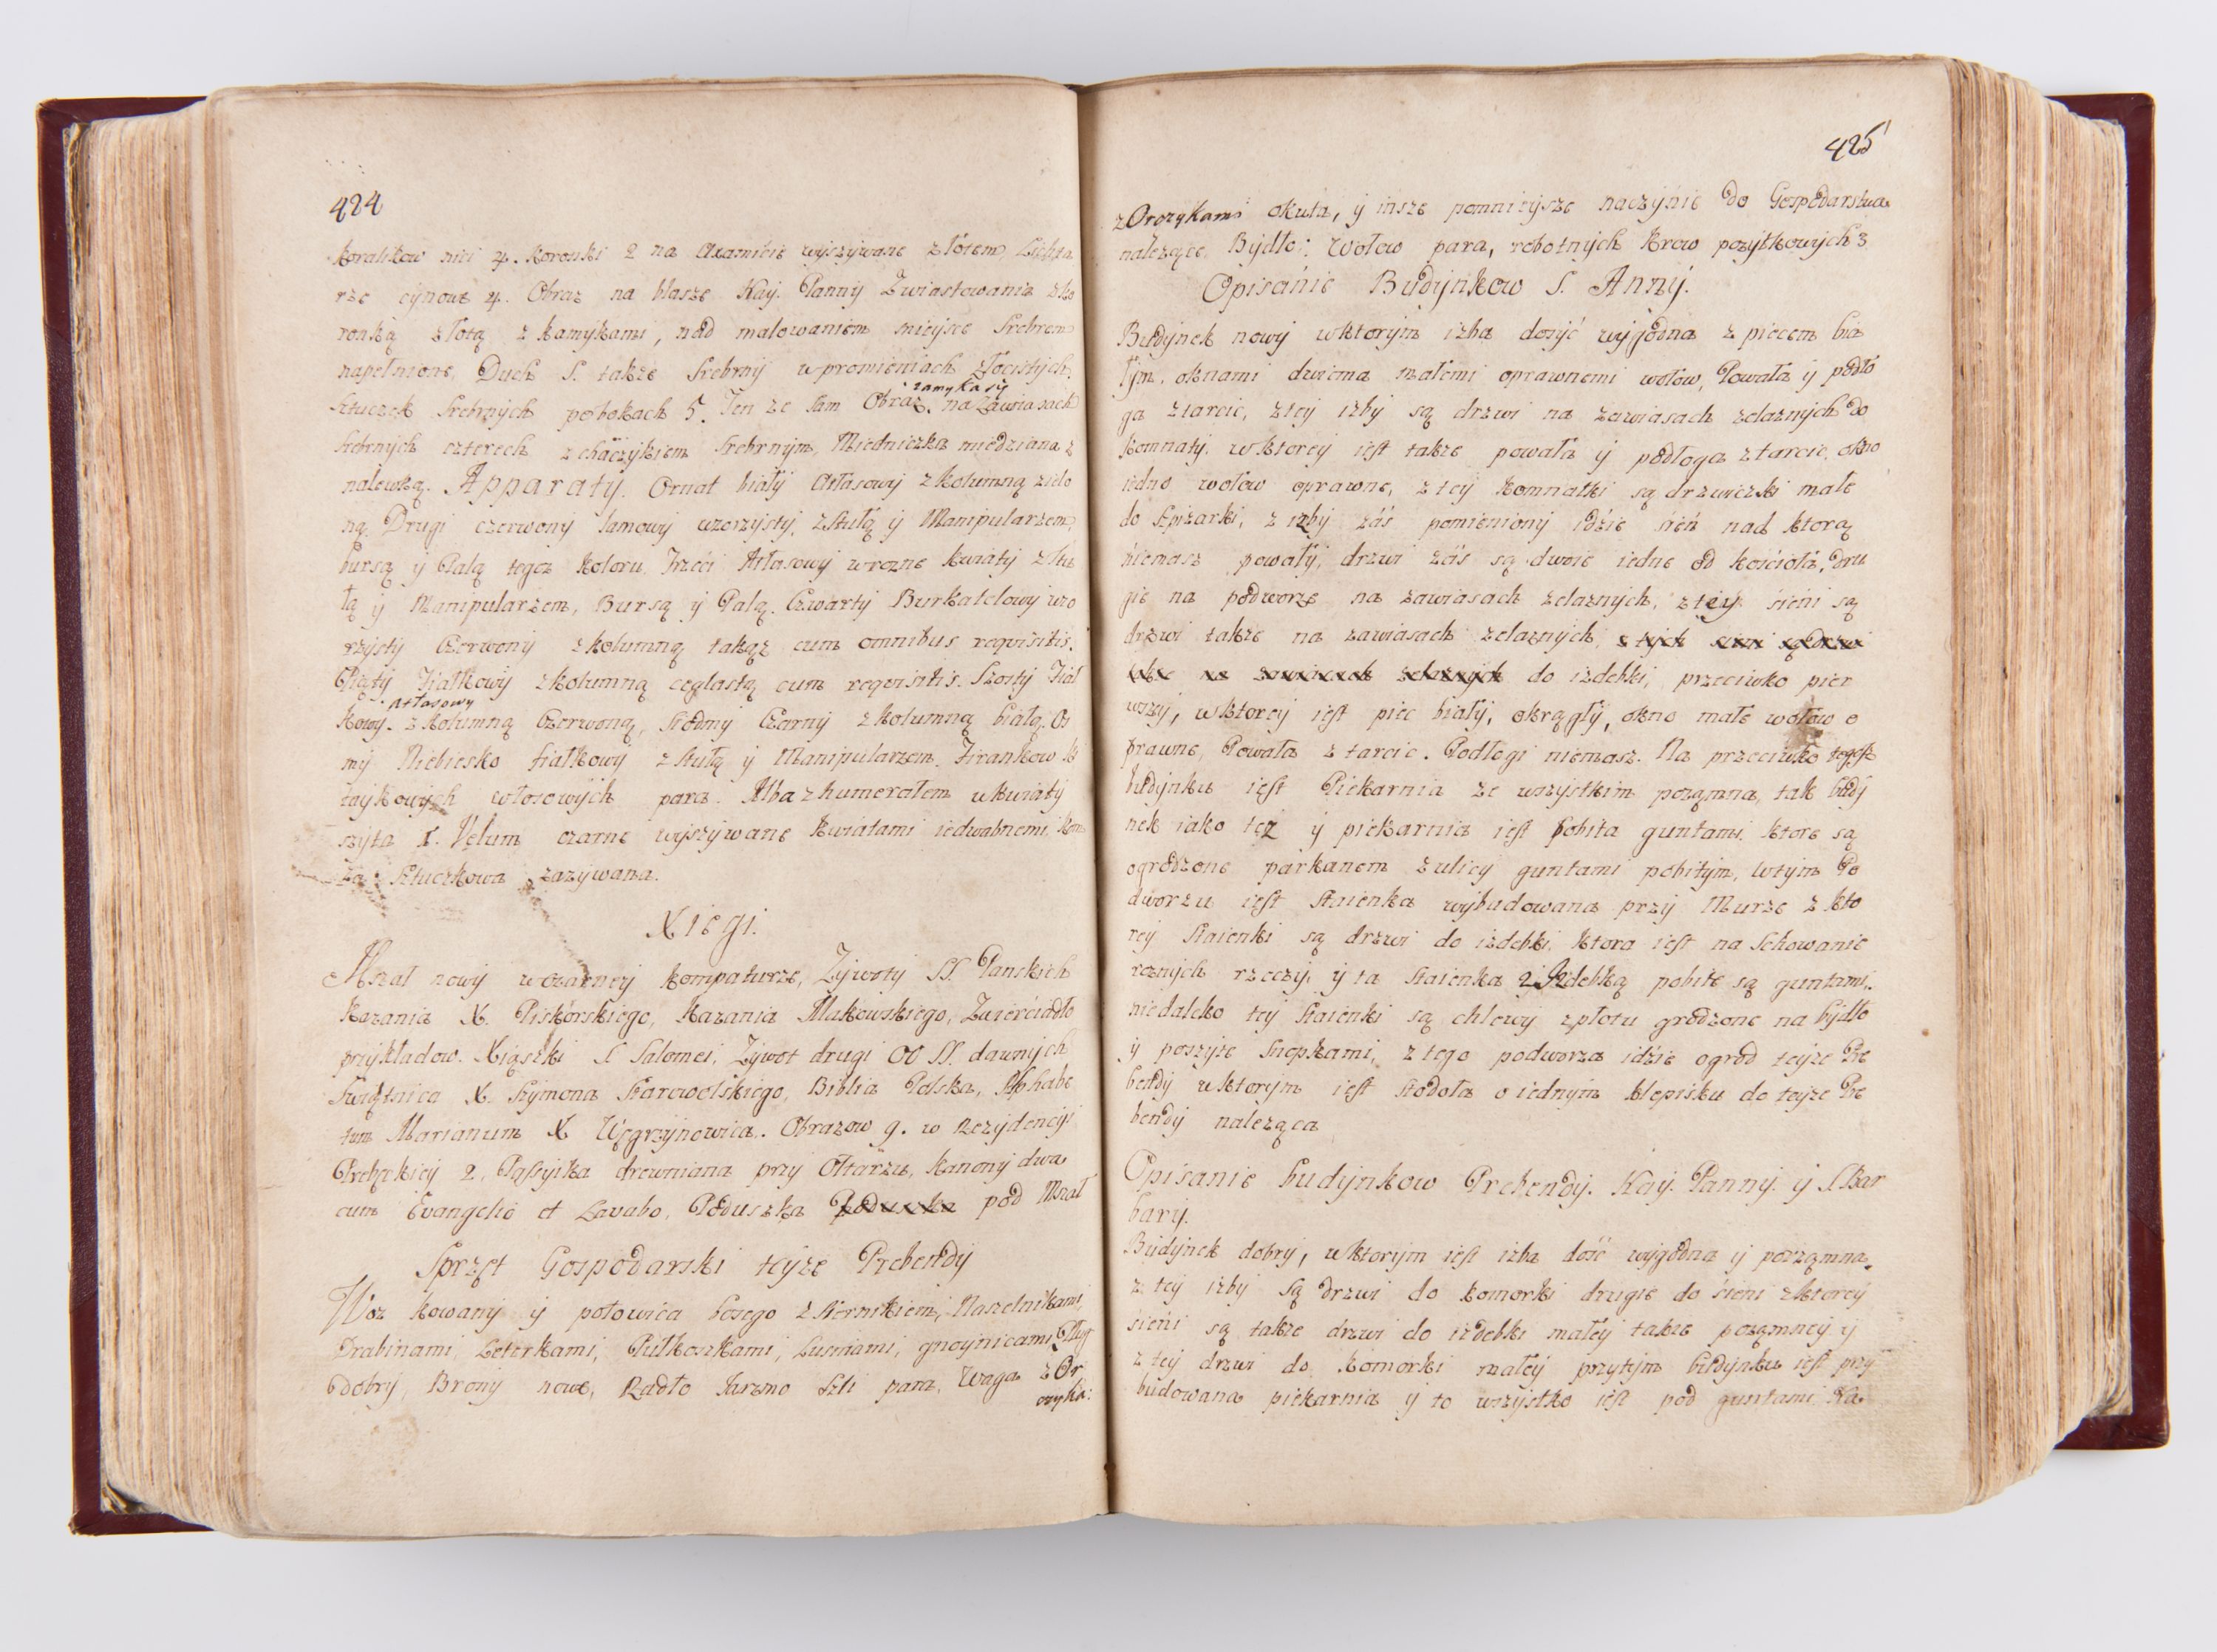 424
Koralikow nici 4. Koronki 2 na Axamicie wyszywane złotem, Lichta
rze cynowe 4. Obraz na blasze Nay. Panny Zwiastowania zko
ronką złotą z kamykami, nad malowaniem mieysce Srebrem
napełnione, Duch S. także Srebrny w promieniach złocistych,
Sztuczek Srebrnych pobokach 5. Ten ze sam Obraz zamyka się na zawiasach
Srebrnych czterech z chaczykiem Srebrnym, Miedniczka miedziana z
nalewką. Apparaty. Ornat biały Atłasowy z kolumną zielo
ną. Drugi czerwony lamowy wzorzysty, zStułą y Manipularzem,
bursą y Palą tegoz koloru. Trzeci Atłasowy wrozne kwiaty zStu
łą y Manipularzem, Bursą y Palą. Czwarty Burkatelowy wzo
rzysty Czerwony z kolumną takąz cum omnibus requisitis.
Piąty Fiałkowy z kolumną ceglastą cum requisitis. Szosty Fiał
kowy Atłasowy z kolumną Czerwoną, siodmy Czarny z kolumną białą, Os
my Niebiesko fiałkowy z Stułą y Manipularzem. Firankow ki
taykowych włosowych para. Alba z humerałem w kwiaty
szyta 1. Velum czarne wyszywane kwiatami iedwabnemi, kom
za Sztuczkowa zazywana.
Xiegi.
Mszał nowy w czarney kompaturze, Zywoty SS. Panskich
Kazania X. Piskorskiego, Kazania Makowskiego, Zwierciadło
przykładow. Xiąszki S Salomei, Zywot drugi OO SS. dawnych
Swiątnica X. Szymona Starowolskiego, Biblia Polska, Alphabe
tum Marianum X Węgrzynowica. Obrazow 9. w Rezydencyi
Prebęskiey 2, Passyika drewniana przy Ołtarzu, Kanony dwa
cum Evangelio et Lavabo, Poduszka Poduszka pod Mszał
Sprzęt Gospodarski teyze Prebendy
Woz kowany y połowica bosego z Sternikiem, Naszelnikami,
Drabinami, Leterkami, Pułkoszkami, Lusniami, gnoynicami, Pług
dobry, Brony nowe, Radło Jarzmo Szli para, Waga z Or
czyka:
425
z Orczykami okuta, y insze pomnieysze naczynie do Gospodarstwa
nalezące. Bydło: Wołow para, robotnych Krow pozytkowych 3
Opisanie Budynkow S. Anny.
Budynek nowy w ktorym izba dosyć wygodna z piecem bia
łym, oknami dwiema małemi oprawnemi wołow, Powała y podło
ga ztarcic, z tey izby są drzwi na zawiasach zelaznych do
komnaty, w ktorey iest takze powała y podłoga z tarcic, okno
iedno wołow oprawne, z tey komnatki są drzwiczki małe
do Spizarki, z izby zaś pomieniony idzie sień nad ktorą
niemasz powały, drzwi zaś są dwoie iedne od kościoła, dru
gie na podworze na zawiasach zelaznych, z tey sieni są
drzwi takze na zawiasach zelaznych, z tych sieni są drzwi
takze na zawiasach zelaznych do izdebki, przeciwko pier
wszey, w ktorey iest piec biały, okrągły, okno małe wołow o
prawne, Powała z tarcic. Podłogi niemasz. Na przeciwko tegosz
budynku iest Piekarnia ze wszystkim porąmna, tak budy
nek iako tez y piekarnia iest pobita guntami, ktore są
ogrodzone parkanem z ulicy guntami pobitym, w tym Po
dworzu iest Staienka wybudowana przy Murze z kto
rey Staienki są drzwi do izdebki, ktora iest na schowanie
roznych rzeczy, y ta Staienka z Izdebką pobite są guntami,
niedaleko tey Staienki są chlewy zpłotu grodzone na bydło
y poszyte Snopkami, z tego podworza idzie ogrod teyze Pre
bendy w ktorym iest Stodoła o iednym klepisku do teyze Pre
bendy naleząca
Opisanie budynkow Prebendy. Nay. Panny y S. Bar
bary.
Budynek dobry, w ktorym iest izba dość wygodna y porząmna,
z tey izby są drzwi do komorki drugie do sieni zktorey
sieni są takze drzwi do izdebki małey takze porąmney y
z tey drzwi do komorki małey przytym budynku iest przy
budowana piekarnia y to wszystko iest pod guntami. Na